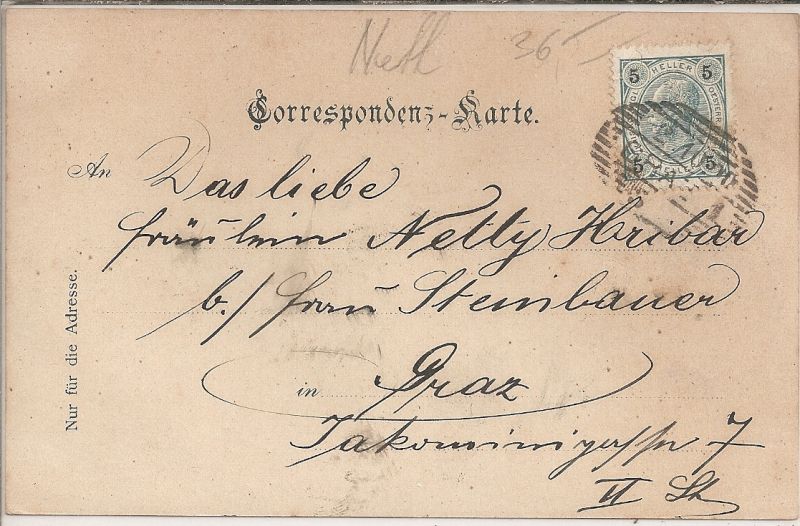 36
5 HELLER 5
5 5
Correspondenz-Karte.
An Das liebe
Fräulein Netty Hribar
b./ Frau Steinbauer
in Graz
Jakominigasse 7
II St
Nur für die Adresse.